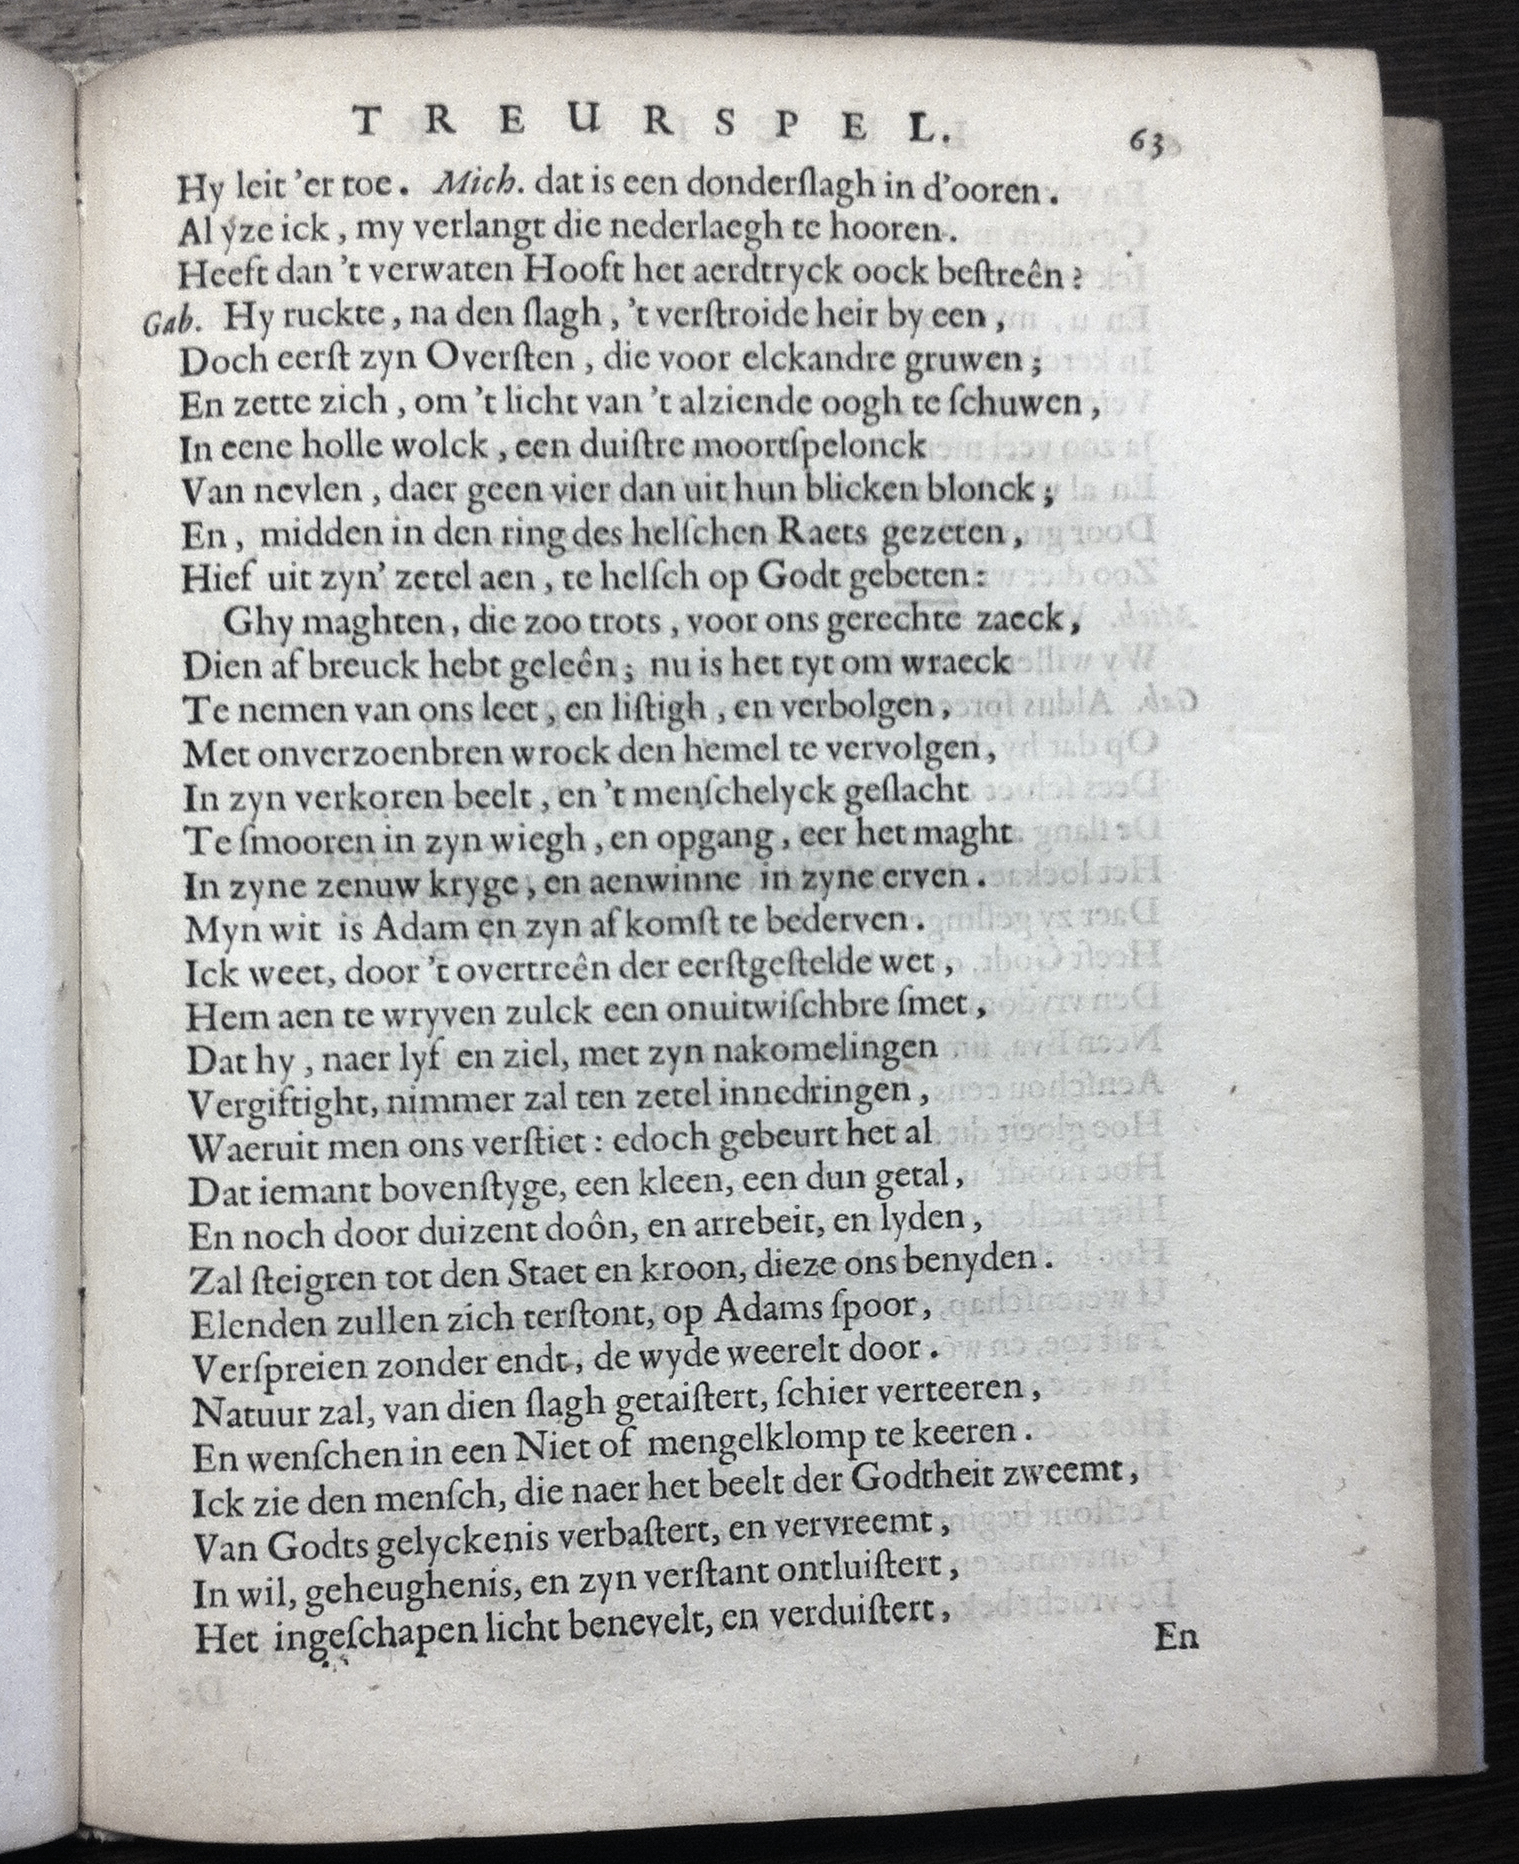 TREURSPEL. 63
Hy leit 'er toe. Mich. dat is een donderſlagh in d'ooren.
Al yze ick, my verlangt die nederlaegh te hooren.
Heeft dan 't verwaten Hooft het aerdtryck oock beſtreên?
Gab. Hy ruckte, na den ſlagh, 't verſtroide heir by een,
Doch eerſt zyn Overſten, die voor elckandre gruwen;
En zette zich, om 't licht van 't alziende oogh te ſchuwen,
In eene holle wolck, een duiſtre moortſpelonck
Van nevlen, daer geen vier dan uit hun blicken blonck;
En, midden in den ring des helſchen Raets gezeten,
Hief uit zyn' zetel aen, te helſch op Godt gebeten:
Ghy maghten, die zoo trots, voor ons gerechte zaeck,
Dien afbreuck hebt geleên; nu is het tyt om wraeck
Te nemen van ons leet, en liſtigh, en verbolgen,
Met onverzoenbren wrock den hemel te vervolgen,
In zyn verkoren beelt, en 't menſchelyck geſlacht
Te ſmooren in zyn wiegh, en opgang, eer het maght
In zyne zenuw kryge, en aenwinne in zyne erven.
Myn wit is Adam en zyn afkomſt te bederven.
Ick weet, door 't overtreên der eerſtgeſtelde wet,
Hem aen te wryven zulck een onuitwiſchbre ſmet,
Dat hy, naer lyf en ziel, met zyn nakomelingen
Vergiftight, nimmer zal ten zetel innedringen,
Waeruit men ons verſtiet: edoch gebeurt het al
Dat iemant bovenſtyge, een kleen, een dun getal,
En noch door duizent doôn, en arrebeit, en lyden,
Zal ſteigren tot den Staet en kroon, dieze ons benyden.
Elenden zullen zich terſtont, op Adams ſpoor,
Verſpreien zonder endt, de wyde weerelt door.
Natuur zal, van dien ſlagh getaiſtert, ſchier verteeren,
En wenſchen in een Niet of mengelklomp te keeren.
Ick zie den menſch, die naer het beelt der Godtheit zweemt,
Van Godts gelyckenis verbaſtert, en vervreemt,
In wil, geheughenis, en zyn verſtant ontluiſtert,
Het ingeſchapen licht benevelt, en verduiſtert,
En